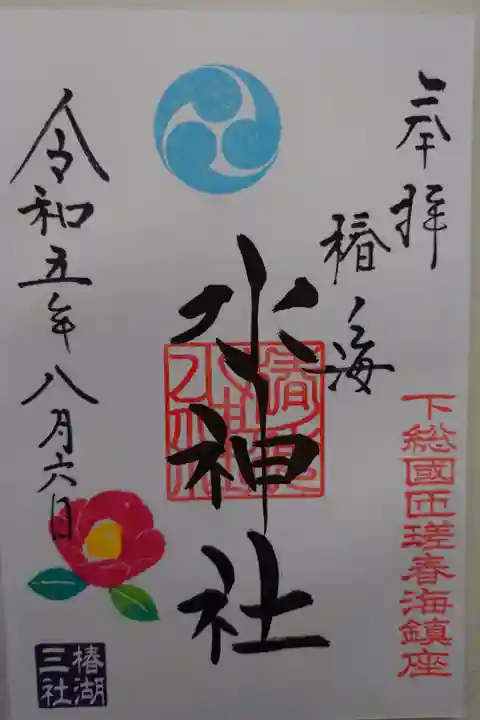 奉拝
椿海
水神社
下総國匝瑳春海鎮座
令和五年八月六日
椿湖
三社